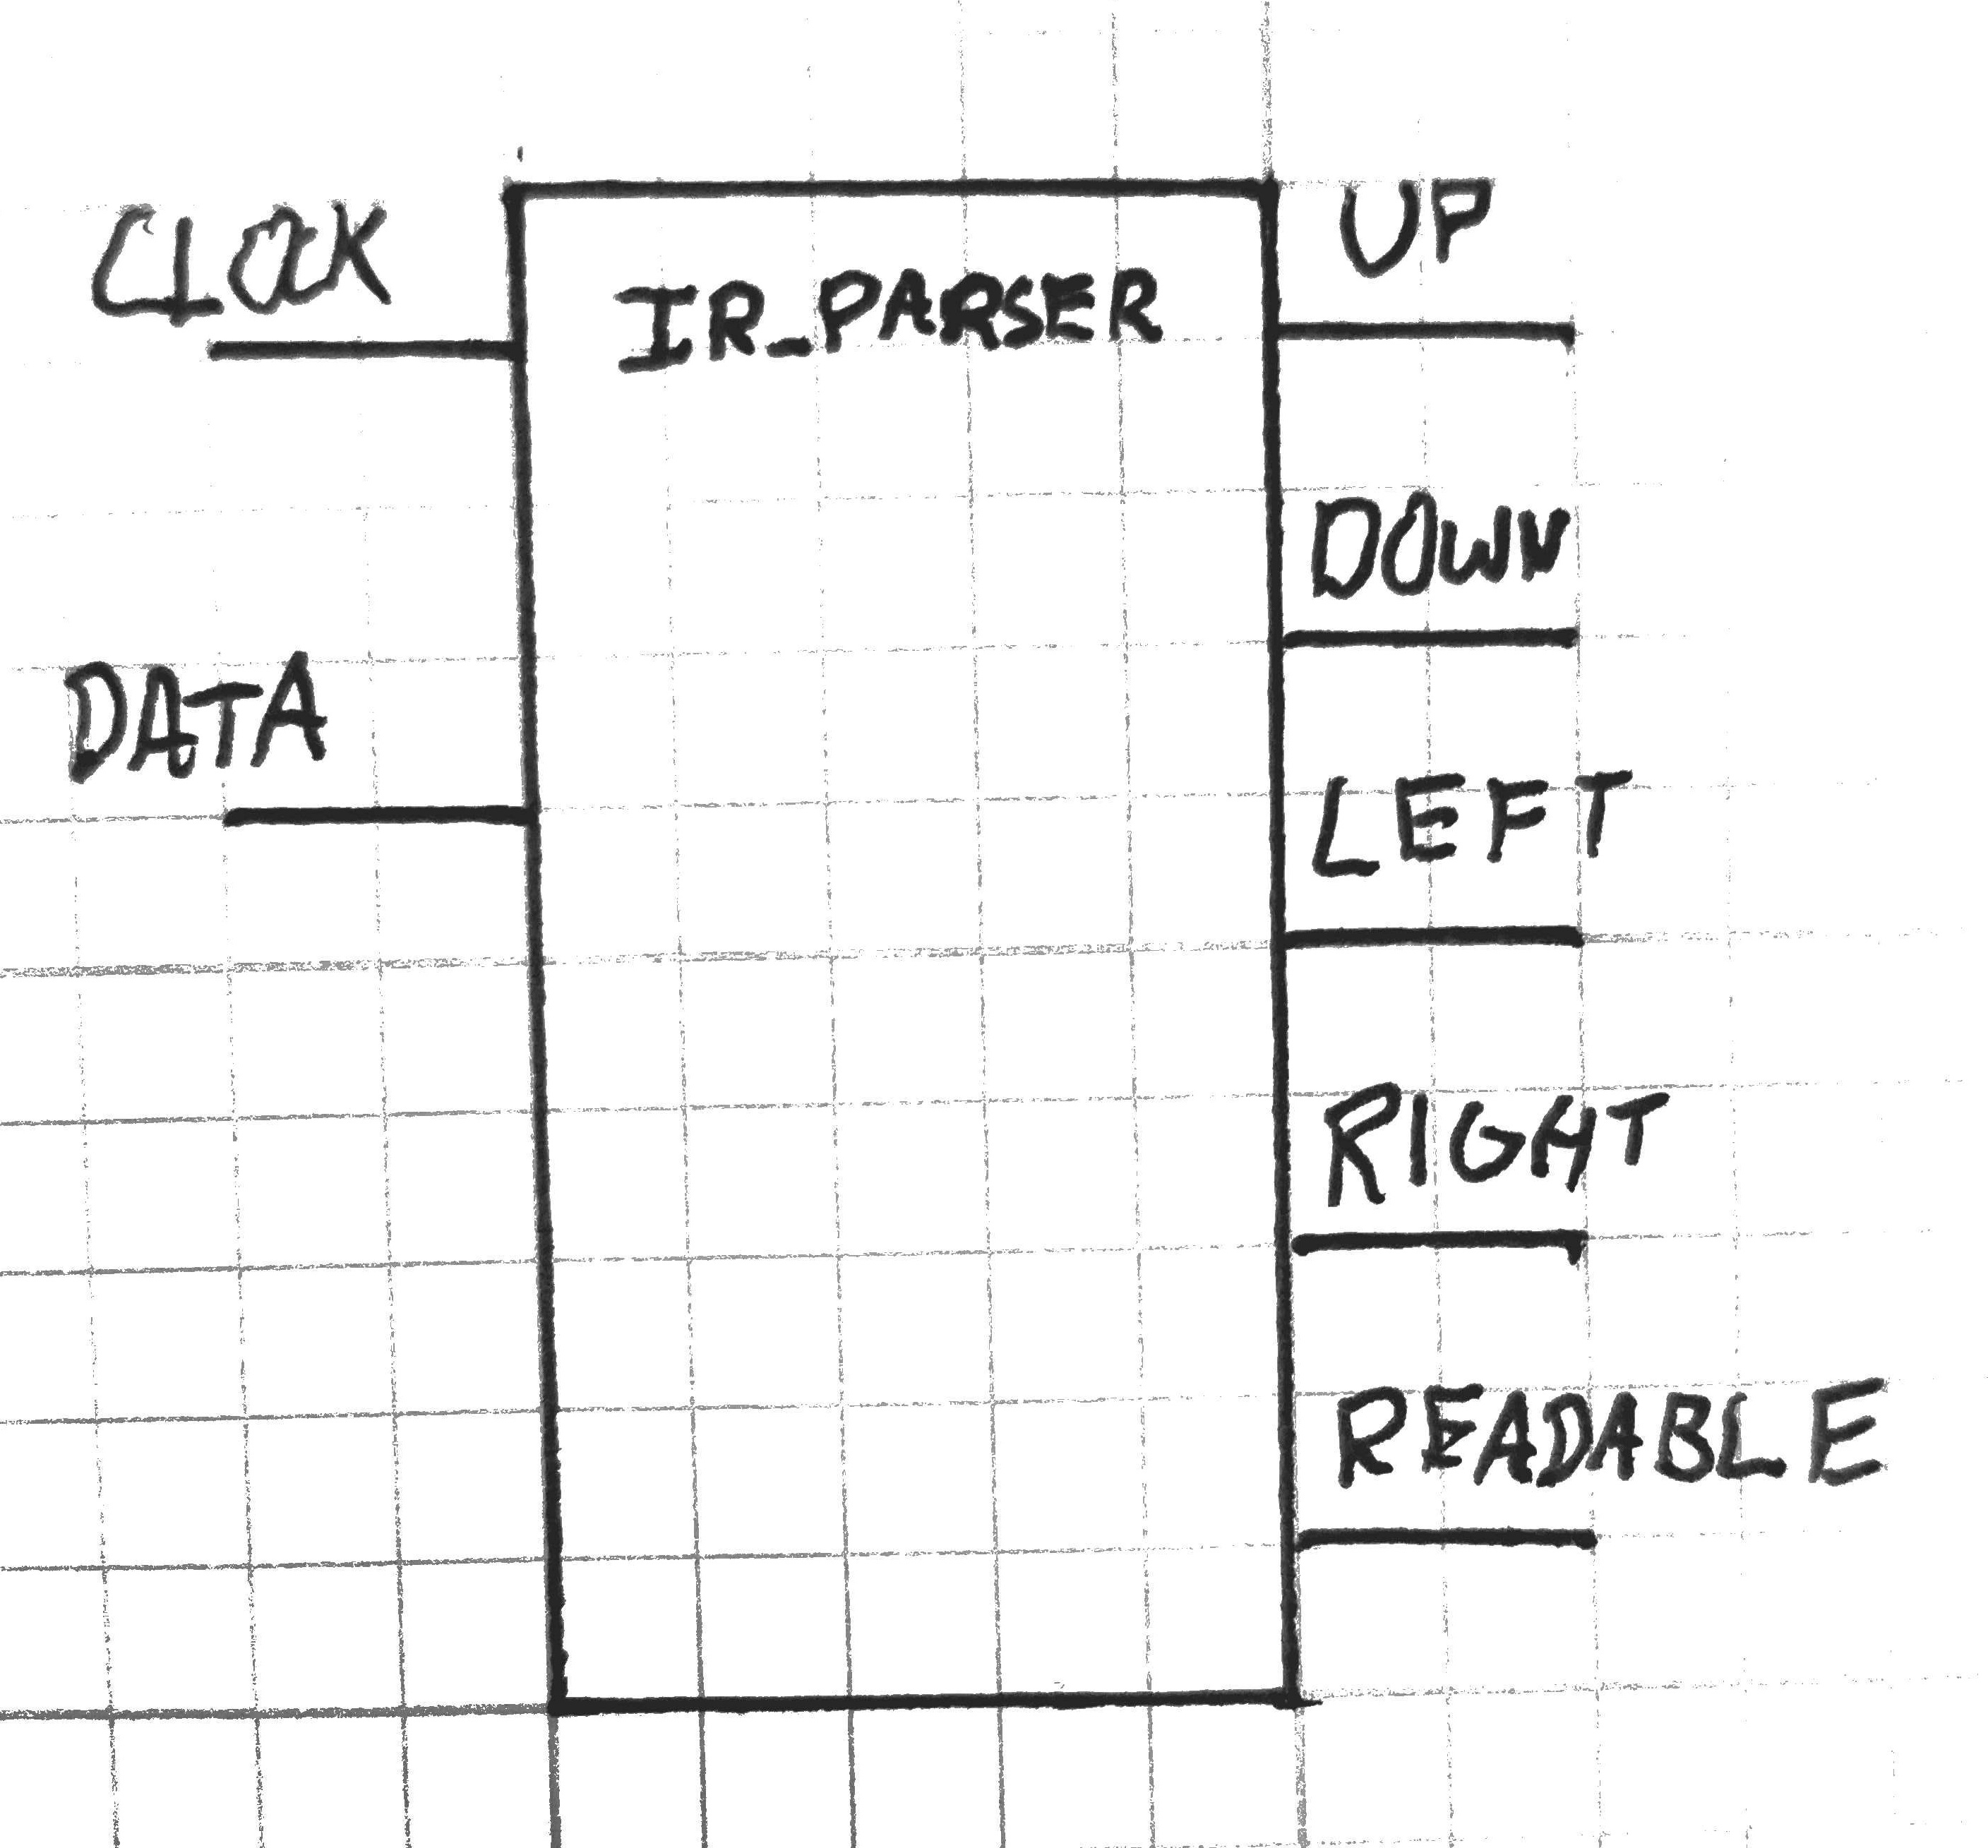 CLOCK
IR_PARSER
UP
DOWN
DATA
LEFT
RIGHT
READABLE